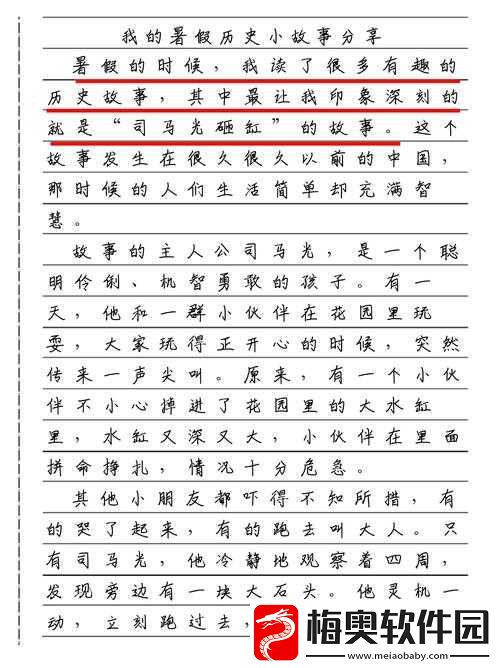 我的暑假历史小故事分享
暑假的时候，我读了很多有趣的
历史故事，其中最让我印象深刻的
就是“司马光砸缸”的故事。这个
故事发生在很久很久以前的中国，
那时候的人们生活简单却充满智
慧。
故事的主人公司马光，是一个聪
明伶俐、机智勇敢的孩子。有一
天，他和一群小伙伴在花园里玩
耍，大家玩得正开心的时候，突然
传来一声尖叫。原来，有一个小伙
伴不小心掉进了花园里的大水缸
里，水缸又深又大，小伙伴在里面
拼命挣扎，情况十分危急。
其他小朋友都吓得不知所措，有
的哭了起来，有的跑去叫大人。只
有司马光，他冷静地观察着四周，
发现旁边有一块大石头。他灵机一
动，立刻跑过去，
梅奥软件园
www.meiaobaby.com